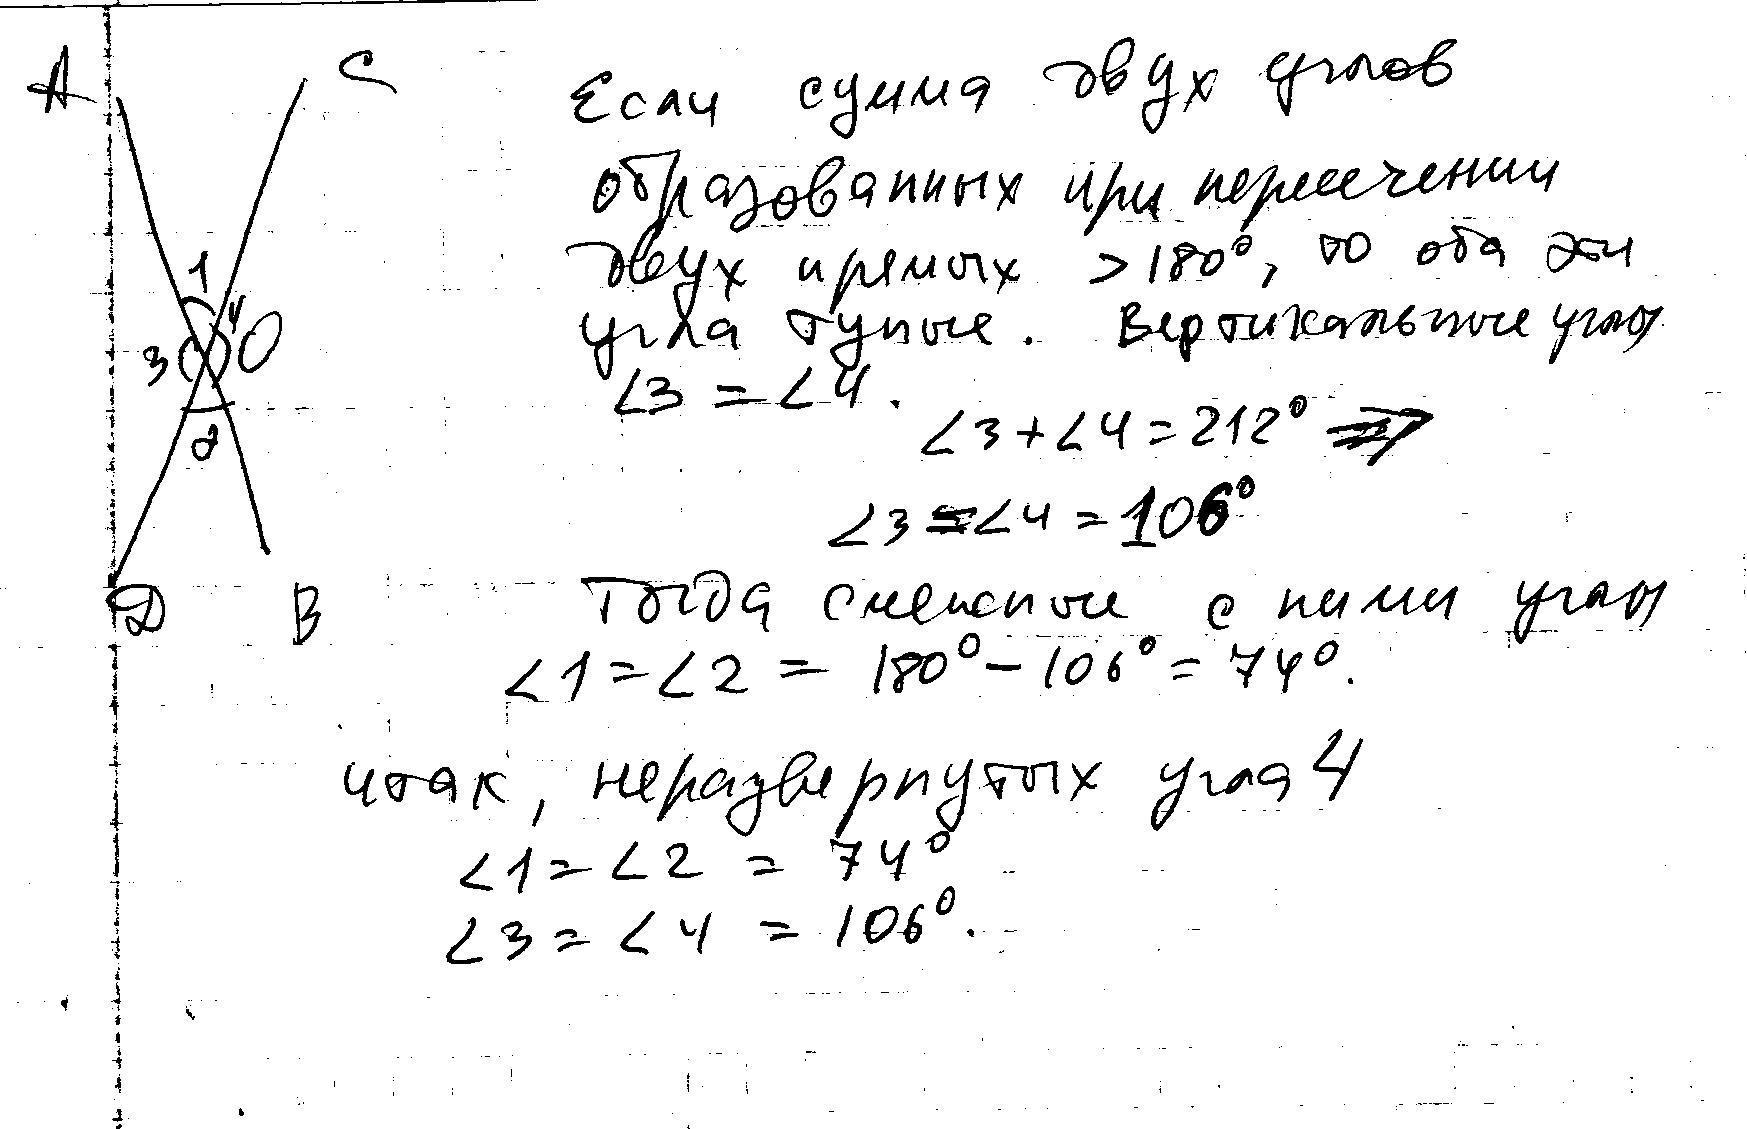 А
С
1
4
3
О
2
D
В
Если сумма двух углов
образованных при пересечении
двух прямых > 180°, то оба эти
угла тупые. Вертикальные углы
∠3 = ∠4.
∠3 + ∠4 = 212° ⇒
∠3 = ∠4 = 106°
Тогда смежные с ними углы
∠1 = ∠2 = 180° - 106° = 74°.
итак, неразвернутых угла 4
∠1 = ∠2 = 74°
∠3 = ∠4 = 106°.